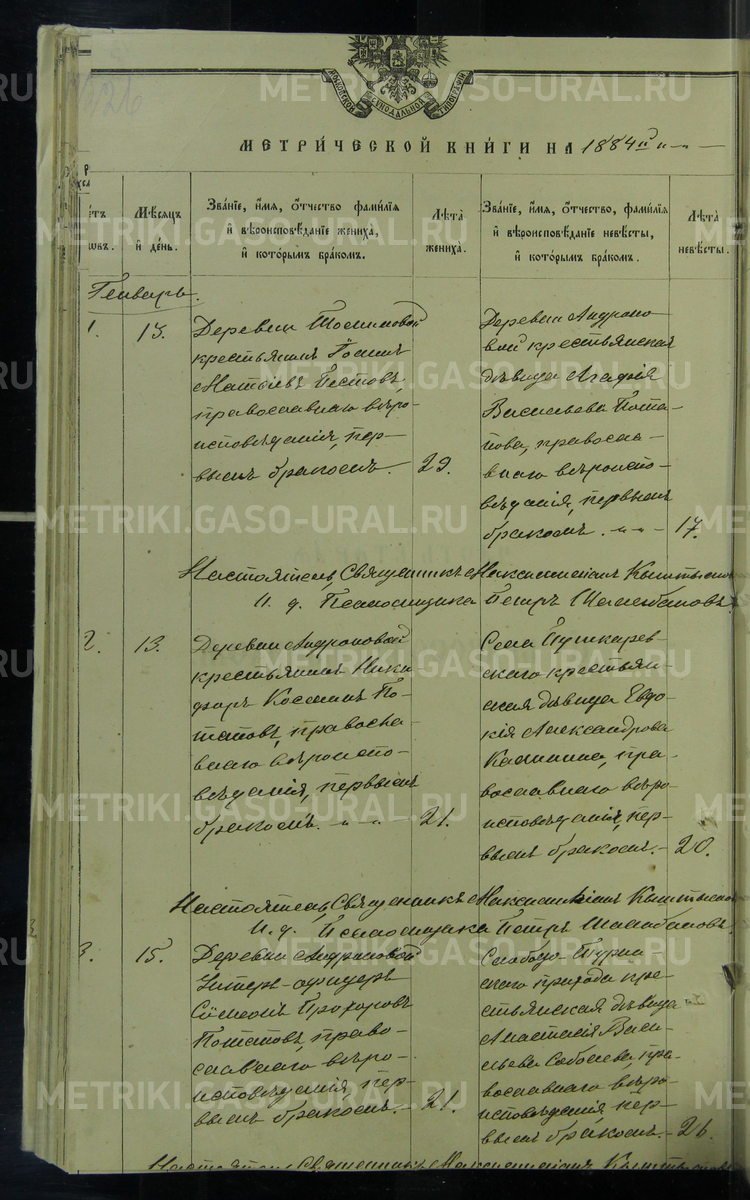 МОСКОВСКОЙ СѴНОДАЛЬНОЙ ТИПОГРАФІИ
МЕТРИ́ЧЕСКОЙ КНИ́ГИ НА 1884й
Мѣ́сяцъ и́ де́нь.
Зва́нїе, и́мя, о́тчество фами́лїя и́ вѣроисповѣ́данїе жениха̀, и́ кото́рымъ бра́комъ.
Лѣ́та жениха̀.
Зва́нїе, и́мя, о́тчество, фами́лїя и́ вѣроисповѣ́данїе невѣ́сты, и́ кото́рымъ бра́комъ.
Лѣ́та невѣ́сты.
Генварь.
1.
13.
Деревни
крестьянинъ
Матѳіевъ Пестовъ,
православнаго вѣро-
исповѣданія, пер-
вымъ бракомъ.
29.
Деревни Андроно-
вой крестьянская
дѣвица Агафія
Васильева Пота-
пова, правосла-
внаго вѣроиспо-
вѣданія, первымъ
бракомъ.
17.
Настоятель, Священникъ Максимиліанъ
И. д. Псаломщика Петръ
2.
13.
Деревни Андроновой
крестьянинъ Ники-
форъ Косминъ По-
таповъ, правосла-
внаго вѣроиспо-
вѣданія, первымъ
бракомъ.
21.
Села Пушкарев-
скаго крестьян-
ская дѣвица Евдо-
кія Александрова
Калинина, пра-
вославнаго вѣро-
исповѣданія, пер-
вымъ бракомъ.
20.
Настоятель, Священникъ Максимиліанъ
И. д. Псаломщика Петръ
3.
15.
Деревни Андроновой
Унтеръ-офицеръ
Сѵмеонъ Прохоровъ
Потаповъ, право-
славнаго вѣро-
исповѣданія, пер-
вымъ бракомъ.
21.
Слободо-Турин-
скаго прихода кре-
стьянская дѣвица
Анастасія Васи-
льева Соболева, пра-
вославнаго вѣро-
исповѣданія, пер-
вымъ бракомъ.
26.
Настоятель, Священникъ Максимиліанъ
METRIKI.GASO-URAL.RU